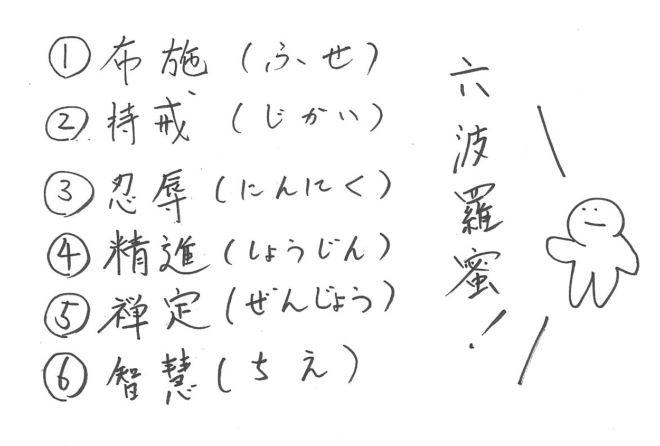 ① 布施 (ふせ)
② 持戒 (じかい)
③ 忍辱 (にんにく)
④ 精進 (しょうじん)
⑤ 禅定 (ぜんじょう)
⑥ 智慧 (ちえ)
六波羅蜜!